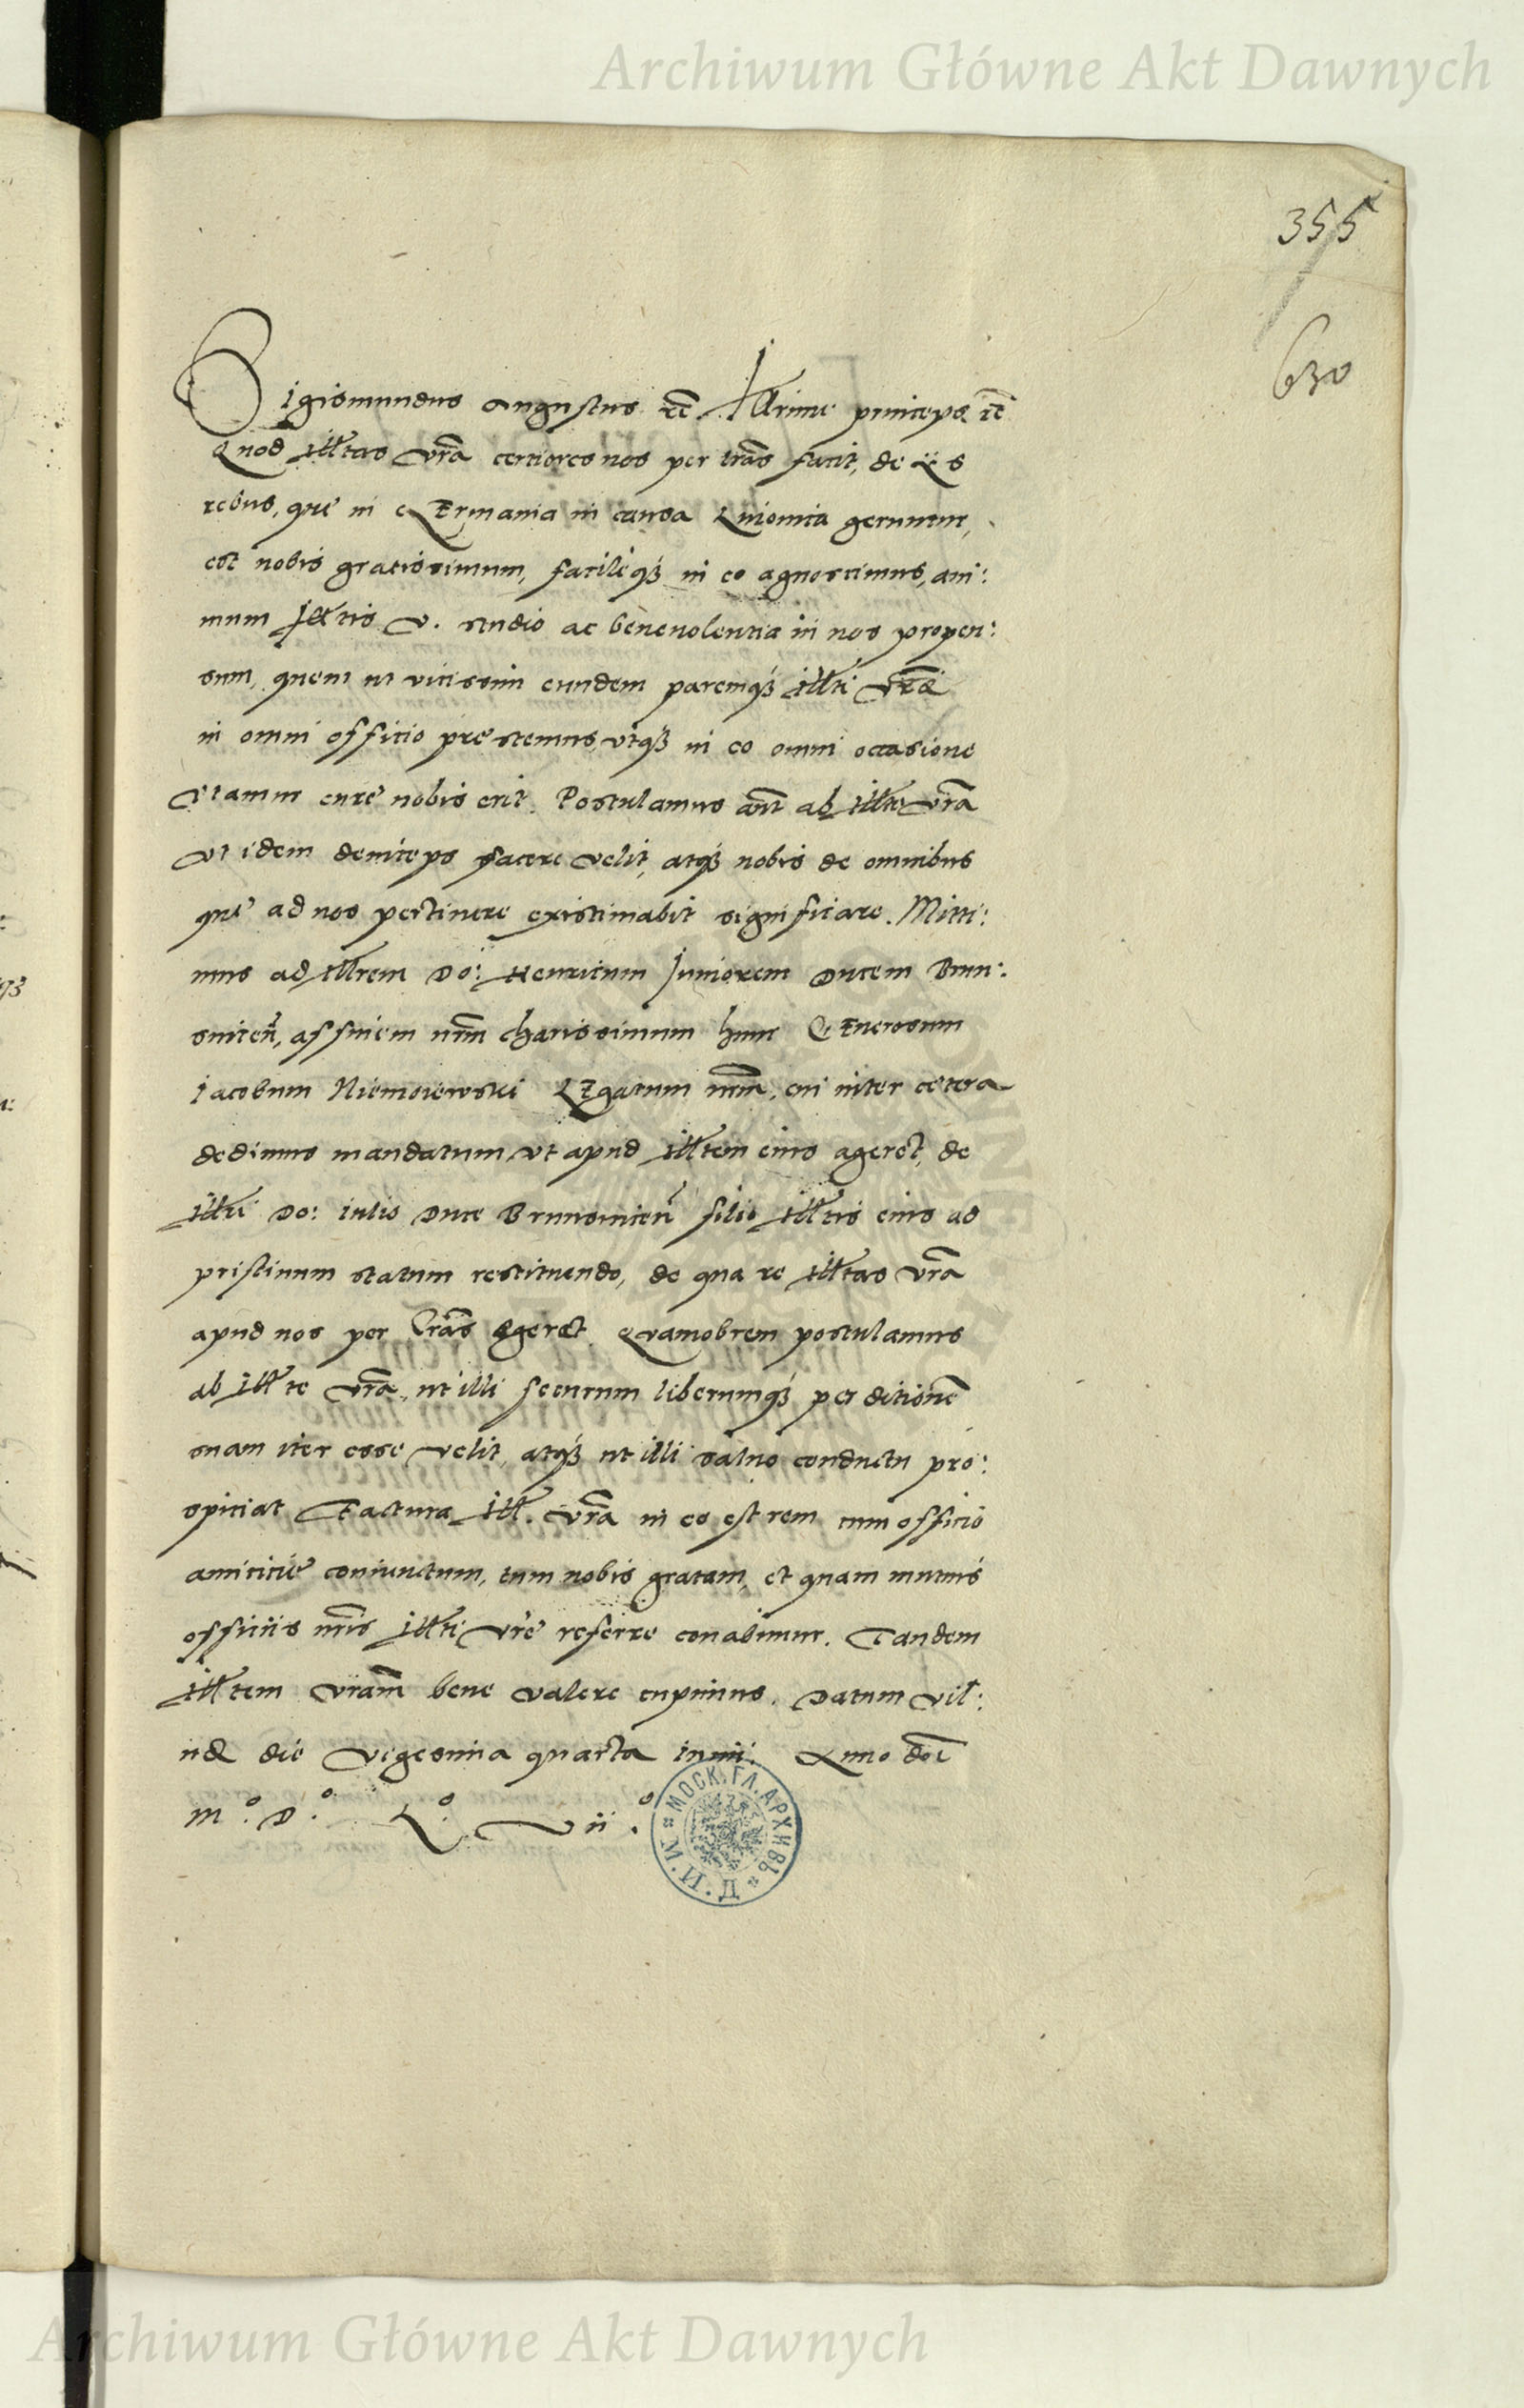 Archiwum Główne Akt Dawnych
355
630
Sigismundus Augustus rc̄ Illrime princeps rc̄
Quod Illtas vrā certiores nos per lrās facit, de ijs
rebus, que in GErmania in causa Liuonica geruntur,
est nobis gratissimum, facileqз in eo agnoscimus, ani:
mum Illtis v. studio ac beneuolentia in nos propen:
sum, quem ut vicissim eundem paremqз Illti vrae
in omni officio prestemus, vtqз in eo omni occasione
vtamur cure nobis erit. Postulamus aūt ab Illte vrā
vt idem deinceps facere velit, atqз nobis de omnibus
que ad nos pertinere existimabit significare. Mitti:
mus ad Illrem Do: Henricum Juniorem Ducem Brun:
suicen̄, affinem nrm̄ charissimum hunc GEnerosum
Jacobum Niemoiewski LEgatum nrm̄, cui inter cetera
dedimus mandatum vt apud Illtem eius ageret, de
Illri Do: Iulio Duce Brunsuicen̄ filio Illtis eius ad
pristinum statum restituendo, de qua re Illtas vrā
apud nos per lrās ageret. Quamobrem postulamus
ab Illte vrā, ut illi securum liberumqз per ditionē
suam iter esse velit, atqз ut illi saluo conductu pro:
spiciat Factura Ill. vrā in eo est rem cum officio
amicitie coniunctum, tum nobis gratam, et quam mutuis
officiis nrīs Illti vre referre conabimur. Tandem
Illtem vrām bene valere cupimus. Datum Vil:
nae die vigesima quarta Iunii. Anno doī
M.º D.º L.º vii.º
МОСК. ГЛ. АРХИВЪ
М. И. Д.
Archiwum Główne Akt Dawnych